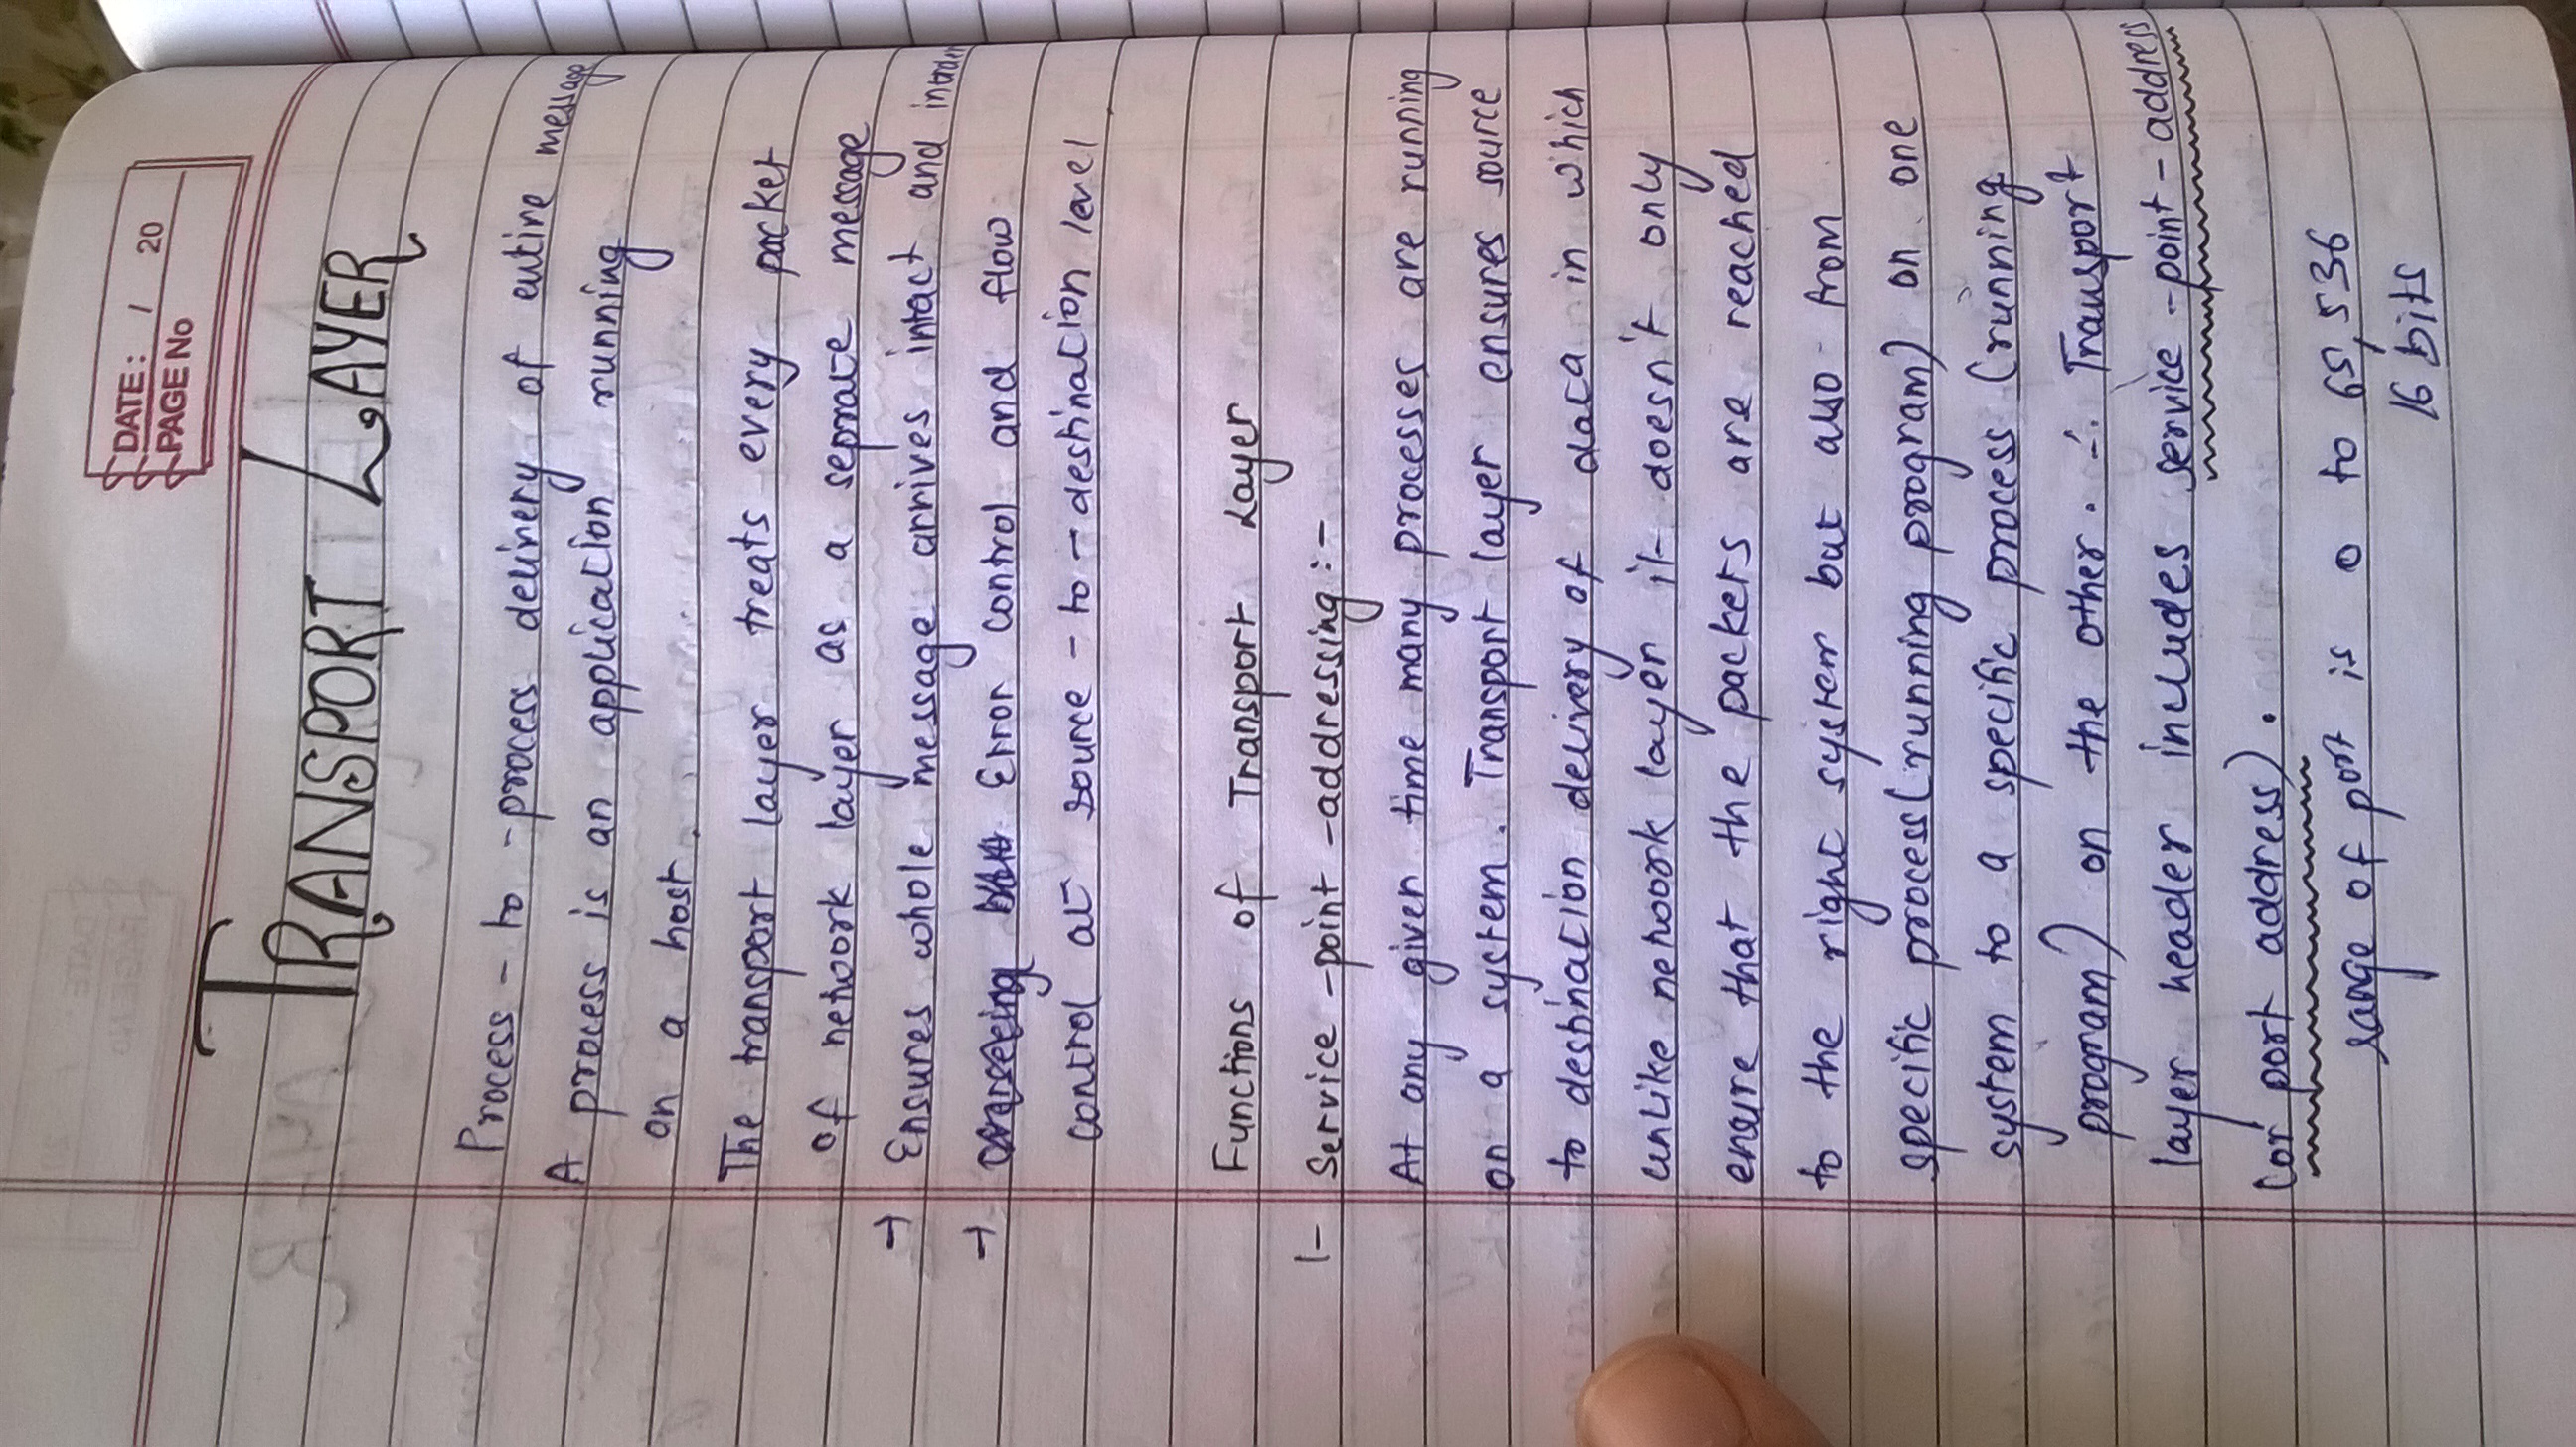 DATE: / 20
PAGE No
TRANSPORT LAYER
Process - to - process delivery of entire message
A process is an application running
on a host.
The transport layer treats every packet
of network layer as a seprate message
→ Ensures whole message arrives intact and inorder
→ Error control and flow
control at source - to - destination level.
Functions of Transport Layer
1- Service -point -addressing :-
At any given time many processes are running
on a system. Transport layer ensures source
to destination delivery of data in which
unlike network layer it doesn't only
ensure that the packets are reached
to the right system but also from
specific process (running program) on one
system to a specific process (running
program) on the other. ∴ Transport
layer header includes service -point - address
(or port address).
range of port is 0 to 65,536
16 bits